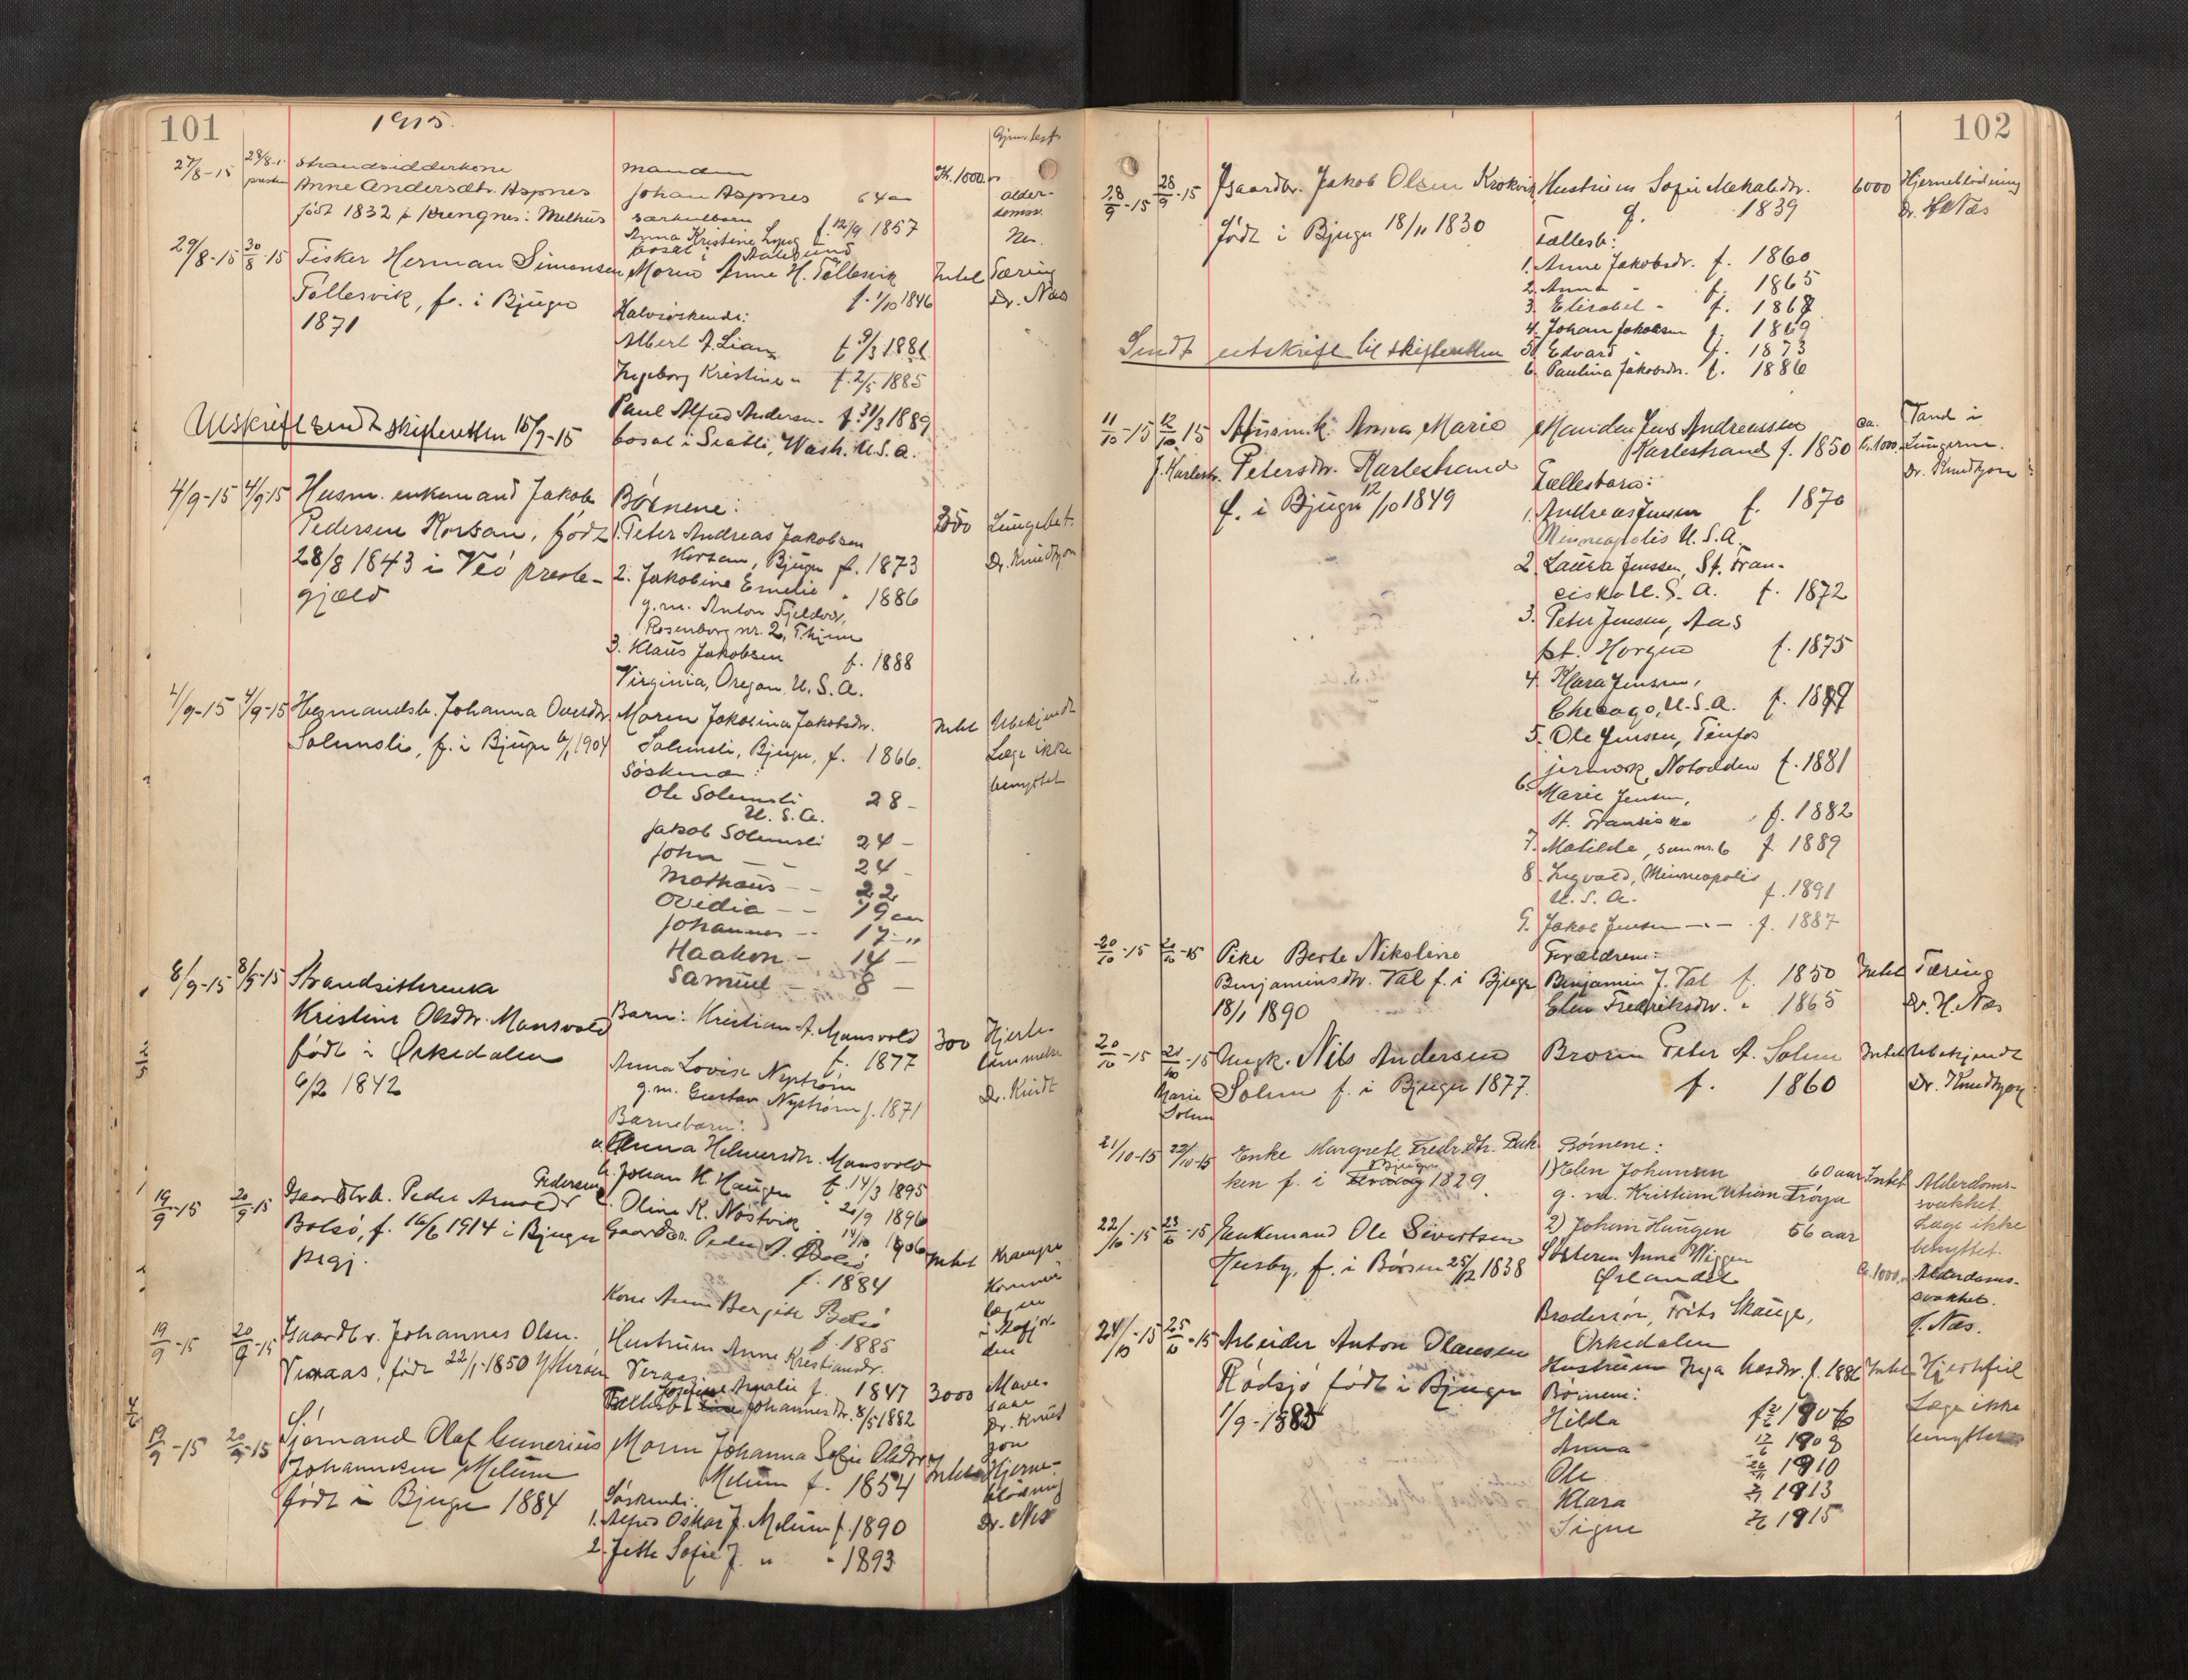 101
1915.
27/8-15
28/8-15
Strandsidderkone
Anne Andersdtr. Aspnes
født 1832 p Krengnes: Melhus
manden
Johan Aspnes 64 aar
særkulbarn f. 12/9 1857
Anna Kristine
bosat i Aalesund
Kr. 1000.
alder-
domssv.
29/8-15 30/8-15
Fisker Herman Simonsen
Tøllesvik, f. i Bjugn
1871
Moren Anne H. Tøllesvik
f. 1/10 1846
Halvsøskende:
Albert A. Lian f. 9/3 1881
Ingeborg Kristine " f. 2/5 1885
Paul Alfred Andersen f. 31/3 1889
bosat i Seattli, Wash. U.S.A.
Intet
Tæring
Dr. Næs
Utskrift sendt skifteretten 15/9-15
4/9-15 4/9-15
Husm. enkemand Jakob
Pedersen Korsan, født
28/8 1843 i Veö preste-
gjæld
Børnene:
1. Peter Andreas Jakobsen
Korsan, Bjugn f. 1873
2. Jakobine Emelie " 1886
g.m. Anton Fjeldvær,
Rosenborg nr. 2, Thjem
3. Klaus Jakobsen f. 1888
Virginia, Oregon, U.S.A.
350
Lungebet.
Dr. Knudtzon
4/9-15 4/9-15
Husmandsb. Johanna Ovesdtr.
Solemsli, f. i Bjugn 1904
Moren Jakobina Jakobsdtr.
Solemsli, Bjugn, f. 1866.
Søskende:
Ole Solemsli 28 -
U.S.A.
Jakob Solemsli 24 -
John - - 24 -
Mathæus - - 22
Ovidia - - 19 aar
Johannes - - 17 "
Haakon - 14 -
Samuel - 8 -
Intet
Ubekjendt
Læge ikke
benyttet
8/9-15 8/9-15
Strandsitterenke
Kristine Olsdtr. Mansvold
født i Orkedalen
6/2 1842
Barn: Kristian A. Mansvold
f. 1877
Anna Lovise Nystrøm
g.m. Gustav Nystrøm f. 1871
Barnebarn:
a. Anna Helmersdtr. Mansvold
b. Johan K. Haugen f. 14/3 1895
c. Oline K. Nøstvik " 20/9 1896
14/10 1906
300
Hjerte-
lammelse
19/9-15 20/9-15
Gaardbrb. Peder Arnoldr Pedersen
Bolsö, f. 16/6 1914 i Bjugn
prgj.
Gaardbr. Peder A. Bolsö
f. 1884
Kone Anna Bergitte Bolsö
f. 1885
Intet
Krampe
19/9-15 20/9-15
Gaardbr. Johannes Olsen
Veraas, født 22/1-1850 Ytterøen
Hustruen Anne Kristiansdr.
Veraas f. 1847
Fællesb. Josefine Amalie Johannesdtr. 8/5 1882
3000
Mave-
saar
Dr. Knud
zon
19/9-15 20/9-15
Sjømand Olaf Gunerius
Johannesen Melum
født i Bjugn 1884
Moren Johanna Sofie Olsdtr.
Melum f. 1854
Søskende.
1. Alfred Oskar J. Melum f. 1890
2. Jette Sofie J. " " 1893
Intet
Hjerne-
blødning
Dr. Næs
102
28/9-15 28/9-15
Gaardbr. Jakob Olsen Krokvik
født i Bjugn 18/11 1830
Hustruen Sofie Mekalsdtr.
f. 1839
Fællesb:
1. Anne Jakobsdr. f. 1860
2. Anna " f. 1865
3. Elisabet - f. 1867
4. Johan Jakobsen f. 1869
5. Edvard " f. 1873
6. Paulina Jakobsdr. f. 1886
6000
Hjerneblødning
Dr. H. Næs
Sendt utskrift til skifteretten
11/10-15 12/10 15
J. Karlestr.
Husmk. Anna Marie
Petersdtr. Karlestrand
f. i Bjugn 12/10 1849
Manden Jens Andreassen
Karlestrand f. 1850
Fællesbarn:
1. Andreas Jensen f. 1870
Minneapolis U.S.A.
2. Laura Jenssen, St. Fran-
cisko U.S.A. f. 1872
3. Peter Jensen, Aas
pt. Horgen f. 1875
4. Klara Jensen,
Chicago, U.S.A. f. 1879
5. Ole Jensen, Tinfos
jernverk, Notodden f. 1881
6. Marie Jensen,
St. Fransisko f. 1882
7. Matilde, som nr. 6 f. 1889
8. Ingvald, Minneapolis
U.S.A. f. 1891
9. Jakob Jensen - " - f. 1887
ca.
kr. 1000.
Vand i
Lungerne.
Dr. Knudtzon
20/10-15 20/10-15
Pike Berte Nikoline
Benjaminsdtr. Val f. i Bjugn
18/1 1890
Forældrene:
Benjamin J. Val f. 1850
Elen Fredriksdtr. " 1865
Intet
Tæring
Dr. H. Næs
20/10-15 21/10-15
Marie
Solem
Ungk. Nils Andersen
Solem f. i Bjugn 1877.
Broren Peter A. Solem
f. 1860
Intet
Ubekjendt
Dr. Knudtzon
21/10-15 22/10-15
Enke Margrete Fredr.dtr. Bak
ken f. i Bjugn 1829.
Børnene:
1) Elen Johansen 60 aar
g.m. Kristian Utian Frøya
2) Johan Haugen 56 aar
Intet
Alderdoms-
svakhet.
Læge ikke
benyttet.
22/10-15 23/10-15
Enkemand Ole Sivertsen
Husby, f. i Børsen 25/12 1838
Søsteren Anna Wiggen
Ørlandet
Brodersøn, Frits Skauge,
Orkedalen
1000.
Alderdoms-
svakhet.
H. Næs.
24/10-15 25/10-15
Arbeider Anton Olaussen
Rødsjö født i Bjugn
1/9-1883
Hustruen Inga f. 1886
Børnene:
Hilda 1906
Anna 1908
Ole 1910
Klara 1913
Signe 1915
Intet
Hjertefeil
Læge ikke
benyttet